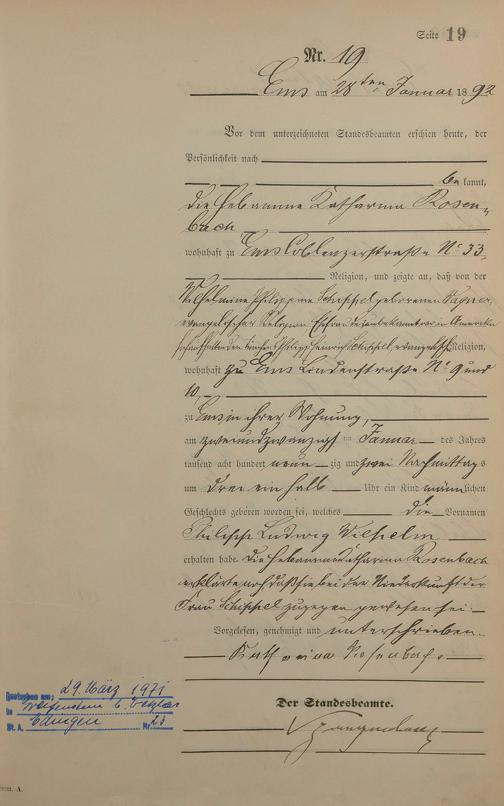 Seite 19
Nr. 19
Ems am 28ten Januar 1892
Vor dem unterzeichneten Standesbeamten erschien heute, der
Persönlichkeit nach
be kannt,
die Hebamme Katharina Rosen-
bach,
wohnhaft zu Ems Coblenzerstraße No 33,
Religion, und zeigte an, daß von der
Wilhelmine Philippine Schissel geborenen
evangelischer Religion, Ehefrau des in Amerika
Schissel, evangelischer Religion,
wohnhaft zu Ems Lindenstraße No 9 und
10,
zu Ems in ihrer Wohnung,
am zweiundzwanzigsten Januar des Jahres
tausend acht hundert neun zig und zwei Nachmittags
um drei ein halb Uhr ein Kind männlichen
Geschlechts geboren worden sei, welches die Vornamen
Philipp Ludwig Wilhelm
erhalten habe. Die Hebamme Katharina Rosenbach
erklärte noch daß sie bei der Niederkunft der
Frau Schissel zugegen gewesen sei.
Vorgelesen, genehmigt und unterschrieben.
Katharina Rosenbach.
Der Standesbeamte.
Gestorben am: 29. März 1971
in
St. A. Nr. 23